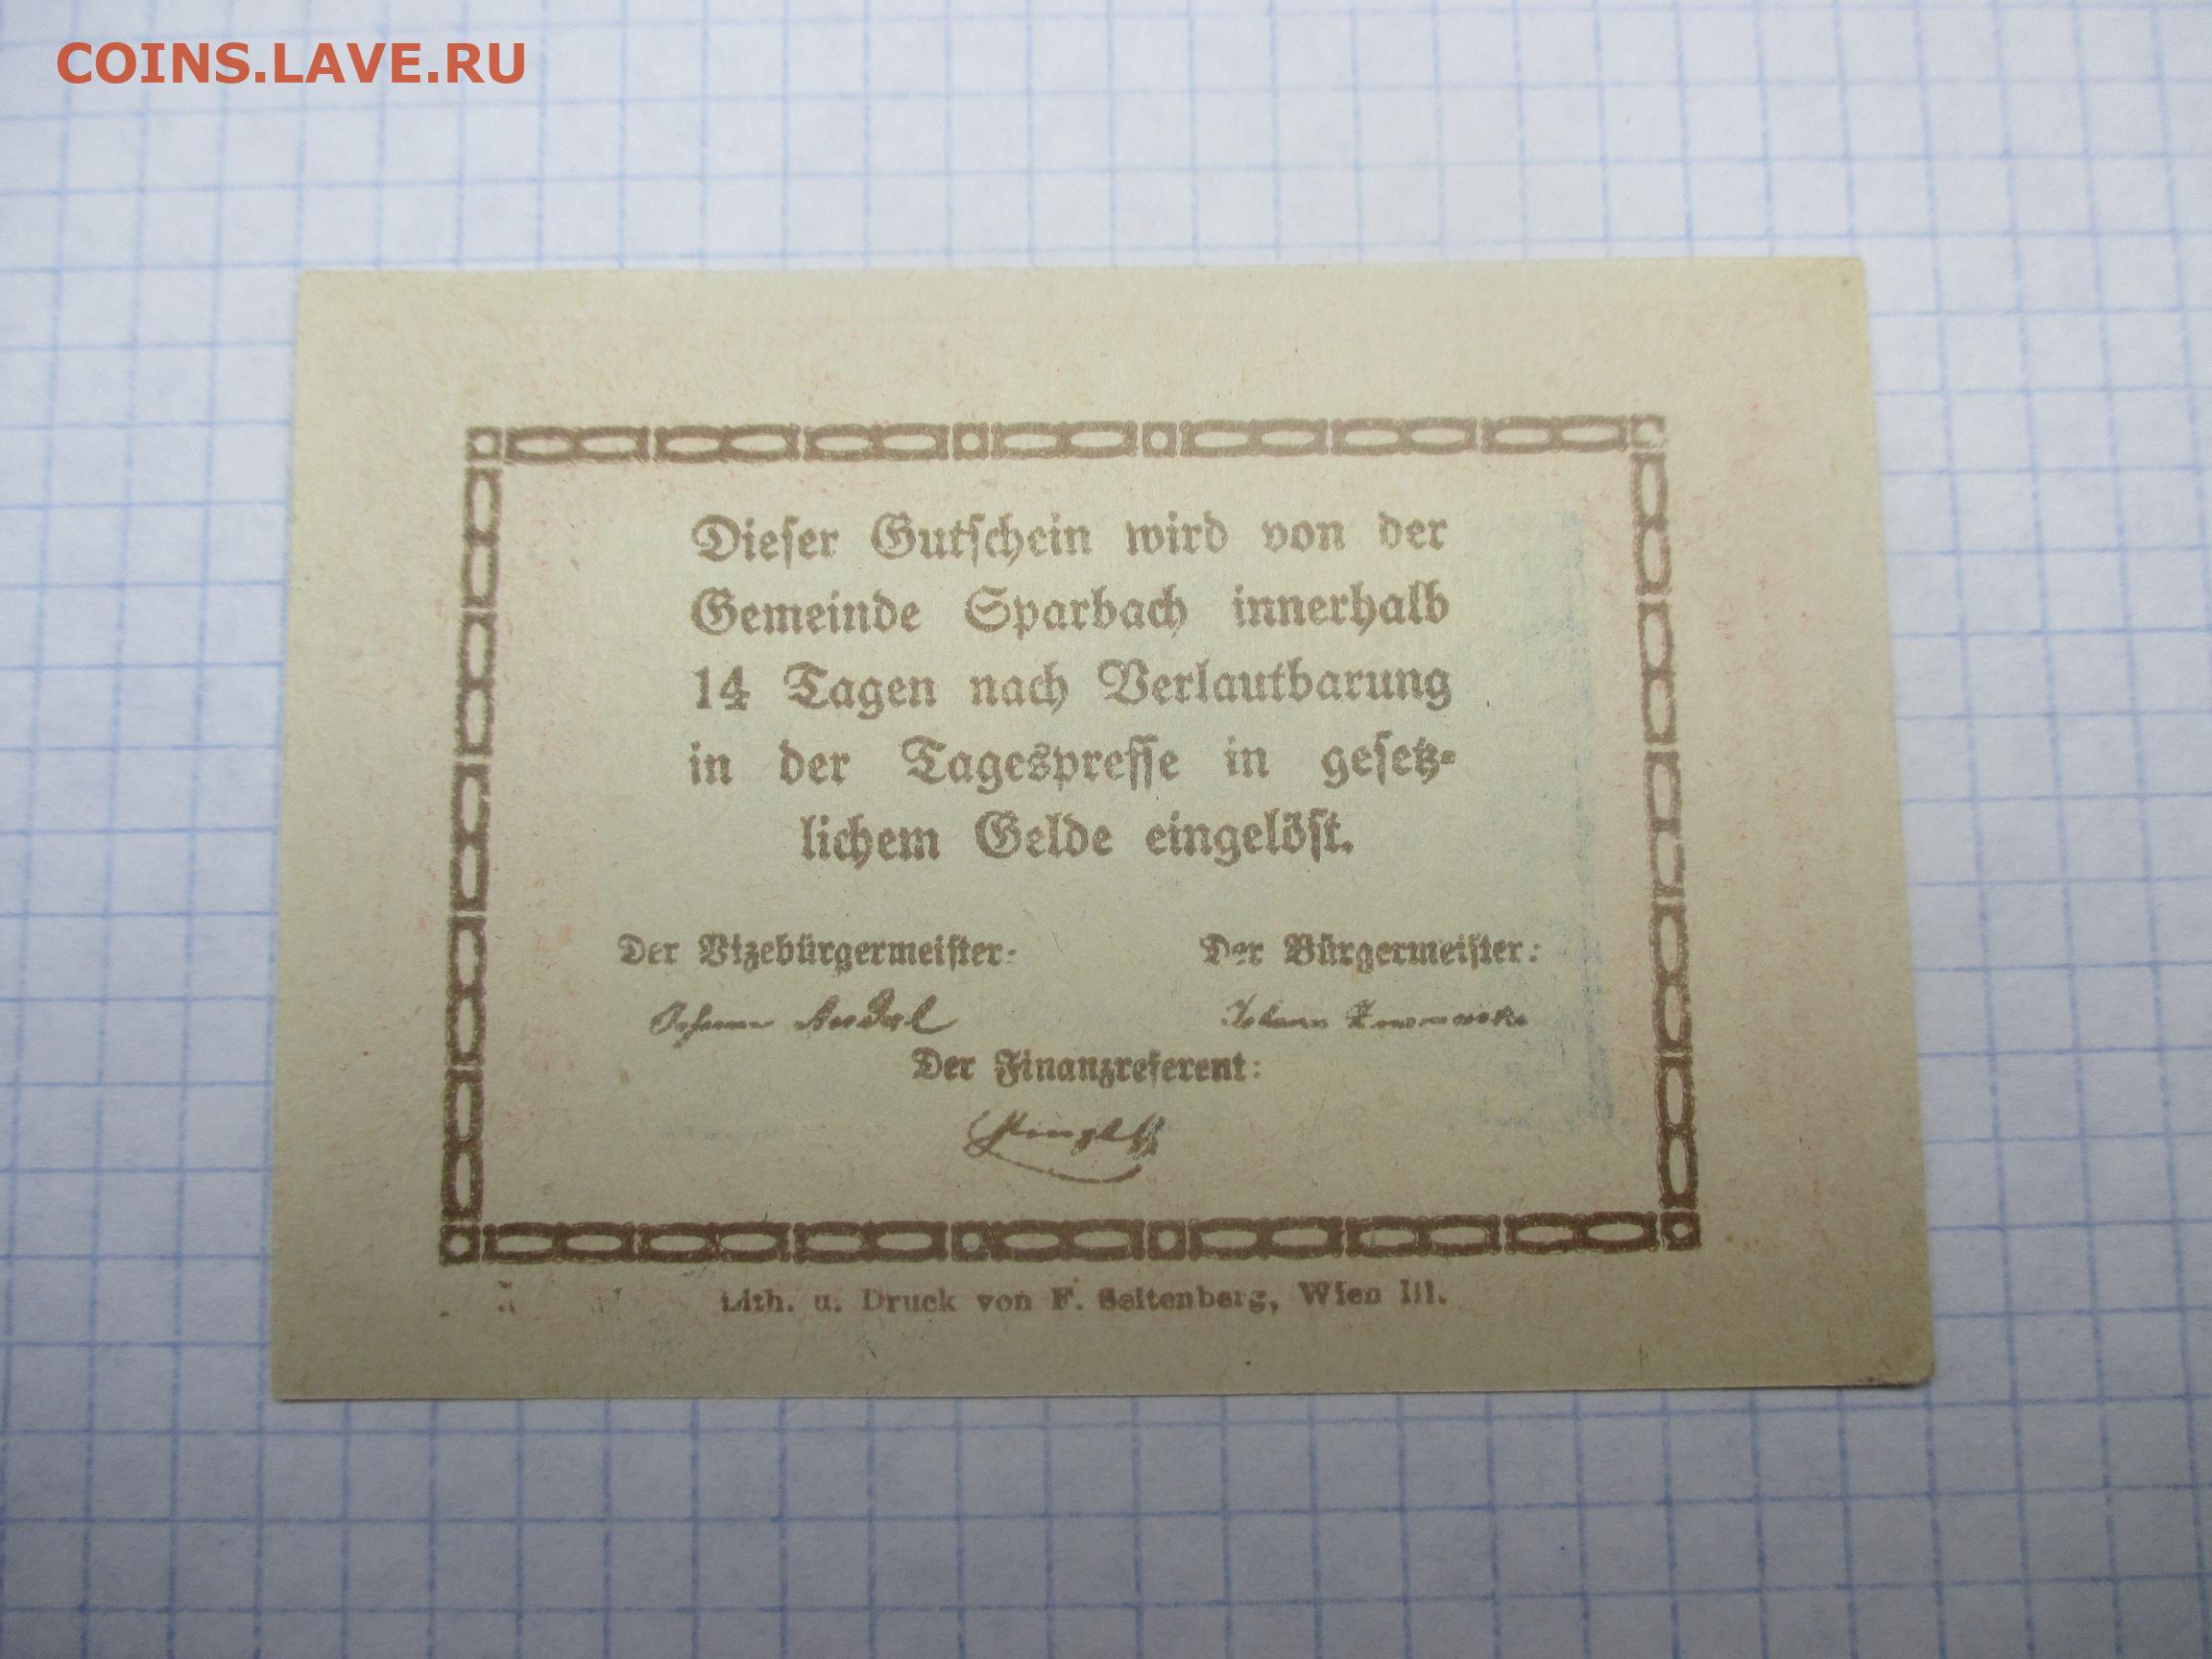 COINS.LAVE.RU
Dieser Gutschein wird von der
Gemeinde Sparbach innerhalb
14 Tagen nach Verlautbarung
in der Tagespresse in gesetz-
lichem Gelde eingelöst.
Der Vizebürgermeister: Der Bürgermeister:
Johann Johann
Der Finanzreferent:
Lith. u. Druck von F. Seitenberg, Wien III.